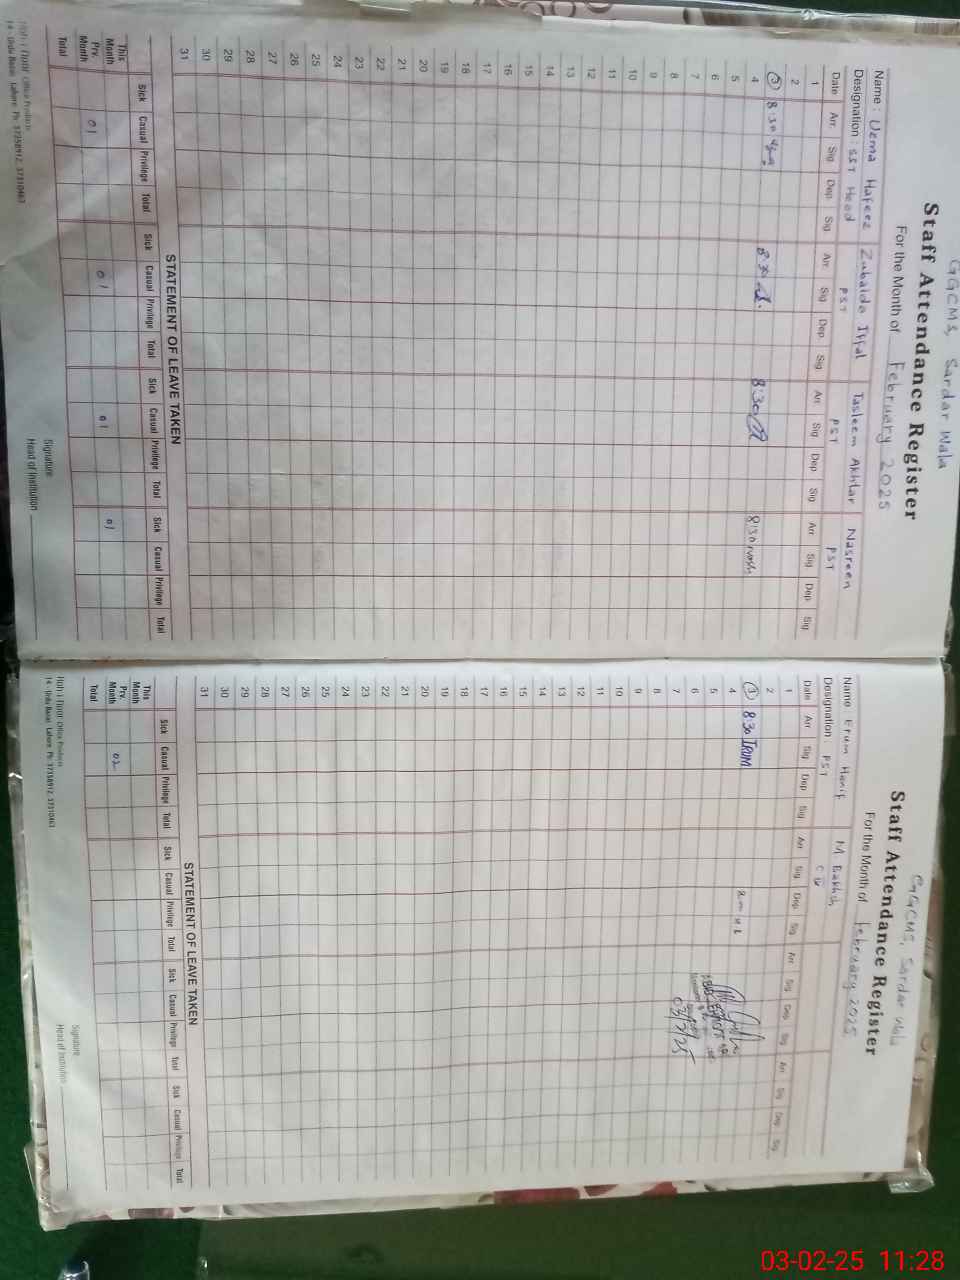 GGCMS, Sardar Wala
Staff Attendance Register
For the Month of February 2025
Name : Uzma Hafeez Zubaida Iffal Tasleem Akhtar Nasreen
Designation : SST Head PST PST PST
Date Arr. Sig. Dep. Sig. Arr. Sig. Dep. Sig. Arr. Sig. Dep. Sig. Arr. Sig. Dep. Sig.
1
2
3 8:30 8:30 8:30 8:30
4
5
6
7
8
9
10
11
12
13
14
15
16
17
18
19
20
21
22
23
24
25
26
27
28
29
30
31
STATEMENT OF LEAVE TAKEN
Sick Casual Privilege Total Sick Casual Privilege Total Sick Casual Privilege Total Sick Casual Privilege Total
This Month
Prv. Month 01 01 01 01
Total
Signature
Head of Institution
14 - Urdu Bazar, Lahore. Ph: 37358912, 37310463
GGCMS, Sardar Wala
Staff Attendance Register
For the Month of February 2025
Name Erum Hanif M. Bakhsh
Designation PST
Date Arr. Sig. Dep. Sig. Arr. Sig. Dep. Sig. Arr. Sig. Dep. Sig. Arr. Sig. Dep. Sig.
1
2
3 8:30 IRUM
4
5
6
7
8
9
10
11
12
13
14
15
16
17
18
19
20
21
22
23
24
25
26
27
28
29
30
31
03/2/25
STATEMENT OF LEAVE TAKEN
Sick Casual Privilege Total Sick Casual Privilege Total Sick Casual Privilege Total Sick Casual Privilege Total
This Month
Prv. Month 02
Total
Signature
Head of Institution
14 - Urdu Bazar, Lahore. Ph: 37358912, 37310463
03-02-25 11:28